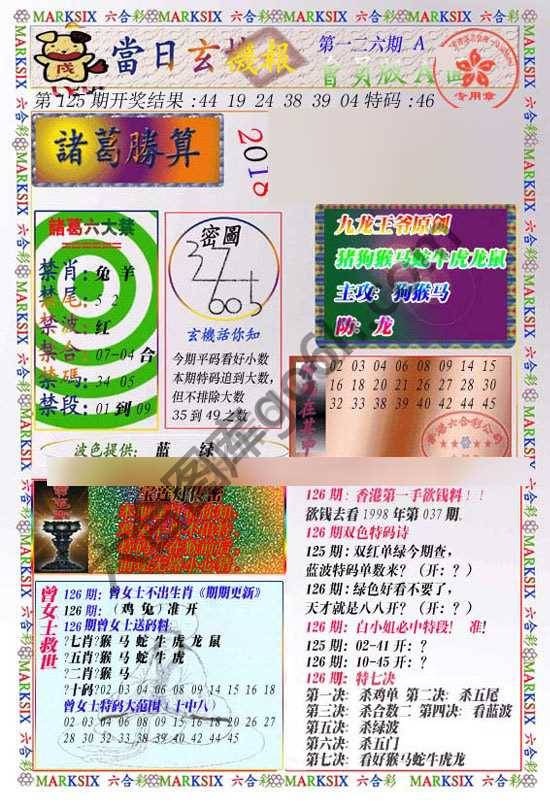 MARKSIX 六合彩 MARKSIX 六合彩 MARKSIX 六合彩 MARKSIX 六合彩
當日玄機報
第一二六期 A
會員版A面
专用章
第 125 期开奖结果 :44 19 24 38 39 04 特码 :46
諸葛勝算
2018
諸葛六大禁
禁肖: 兔 羊
禁尾: 5 2
禁波: 红
禁合: 07-04 合
禁碼: 34 05
禁段: 01 到 09
密圖
玄機話你知
今期平码看好小数
本期特码追到大数,
但不排除大数
35 到 49 之数
九龙王爷原创
猪狗猴马蛇牛虎龙鼠
主攻: 狗猴马
防: 龙
02 03 04 06 08 09 14 15
16 18 20 21 26 27 28 30
32 33 38 39 40 42 44 45
波色提供: 蓝 绿
曾女士救世
126 期: 曾女士不出生肖《期期更新》
126 期: (鸡 兔) 准 开
126 期曾女士送码料:
?七肖?猴 马 蛇 牛 虎 龙 鼠
?五肖?猴 马 蛇 牛 虎
?二肖?猴 马
?十码?02 03 04 06 08 09 14 15 16 18
曾女士特码大范围 (十中八)
02 03 04 06 08 09 15 16 18 20 26 27
28 30 32 33 38 39 40 42 44 45
126 期: 香港第一手欲钱料!!
欲钱去看 1998 年第 037 期.
126 期双色特码诗
125 期: 双红单绿今期查,
蓝波特码单数来? (开: ?)
126 期: 绿色好看不要了,
天才就是八八开? (开: ?)
126 期: 白小姐必中特段! 准!
125 期: 02-41 开: ?
126 期: 10-45 开: ?
126 期: 特七决
第一决: 杀鸡单 第二决: 杀五尾
第三决: 杀合数二 第四决: 看蓝波
第五决: 杀绿波
第六决: 杀五门
第七决: 看好猴马蛇牛虎龙
MARKSIX 六合彩 MARKSIX 六合彩 MARKSIX 六合彩 MARKSIX 六合彩